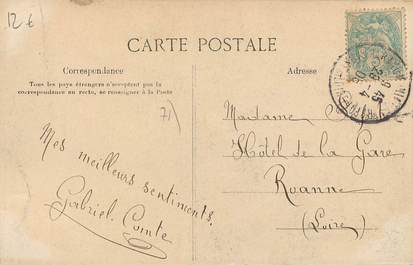 12 €
CARTE POSTALE
Correspondance
Tous les pays étrangers n'acceptent pas la
correspondance au recto, se renseigner à la Poste
Adresse
71)
Mes meilleurs sentiments.
Gabriel Comte
Madame
Hôtel de la Gare
Roanne
(Loire)